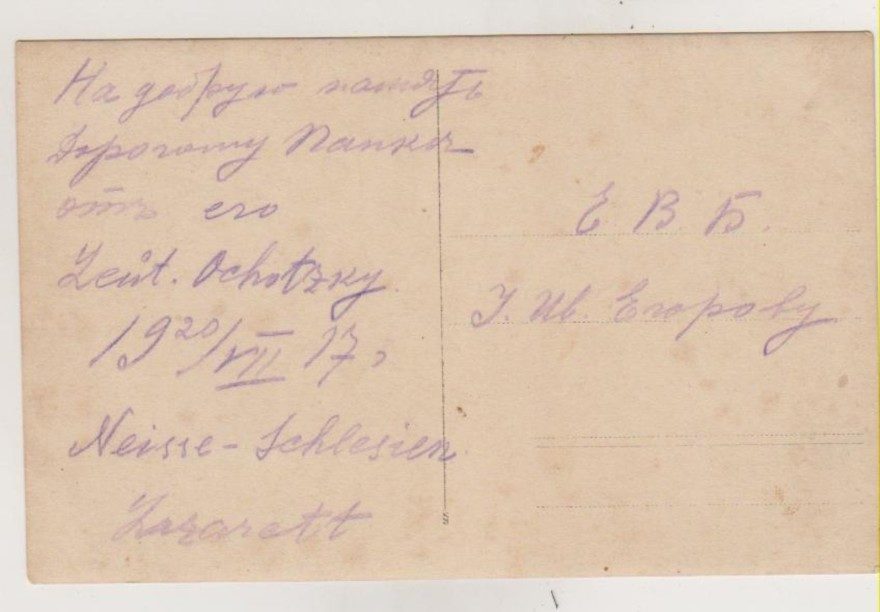 На добрую память
Дорогому Папка
отъ его
Leut. Ochotzky.
19 20/VII 17 г
Neisse-Schlesien
Lazarett
Е. В. Б.
И. Ив. Егорову